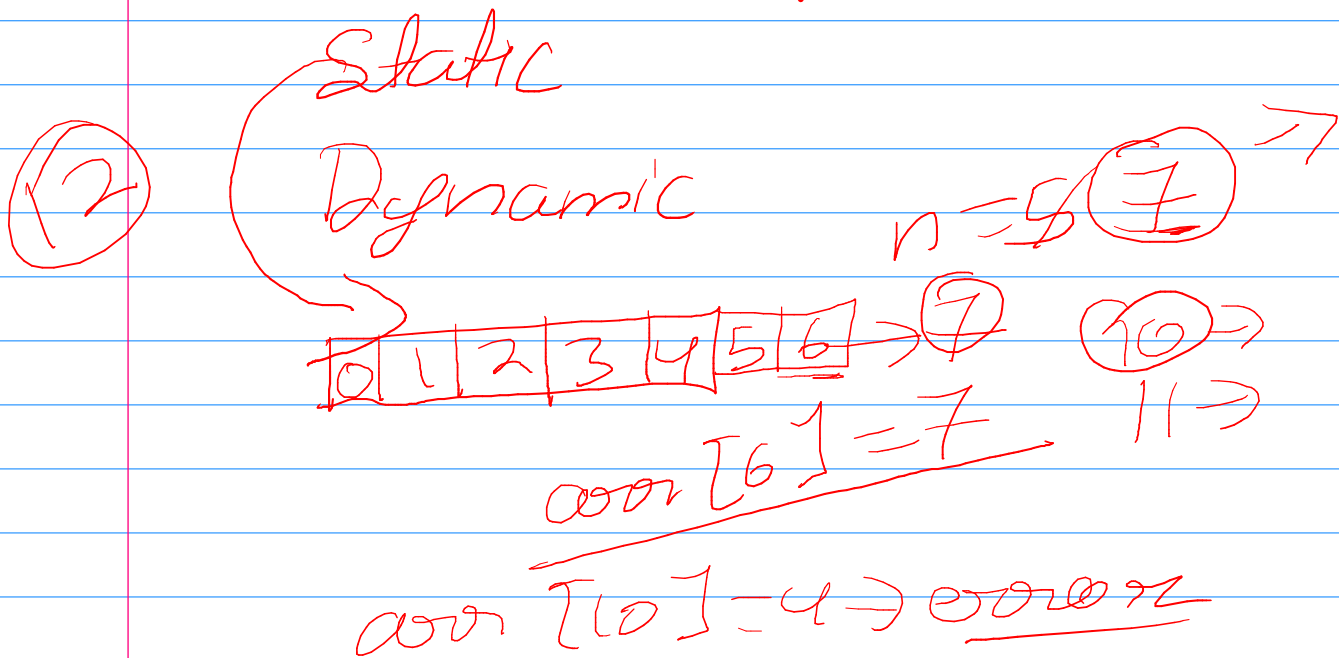 Static
Dynamic
12
n = 5 7 →
0 1 2 3 4 5 6 → 7
10 →
11 →
arr [6] = 7
arr [10] = 4 → error